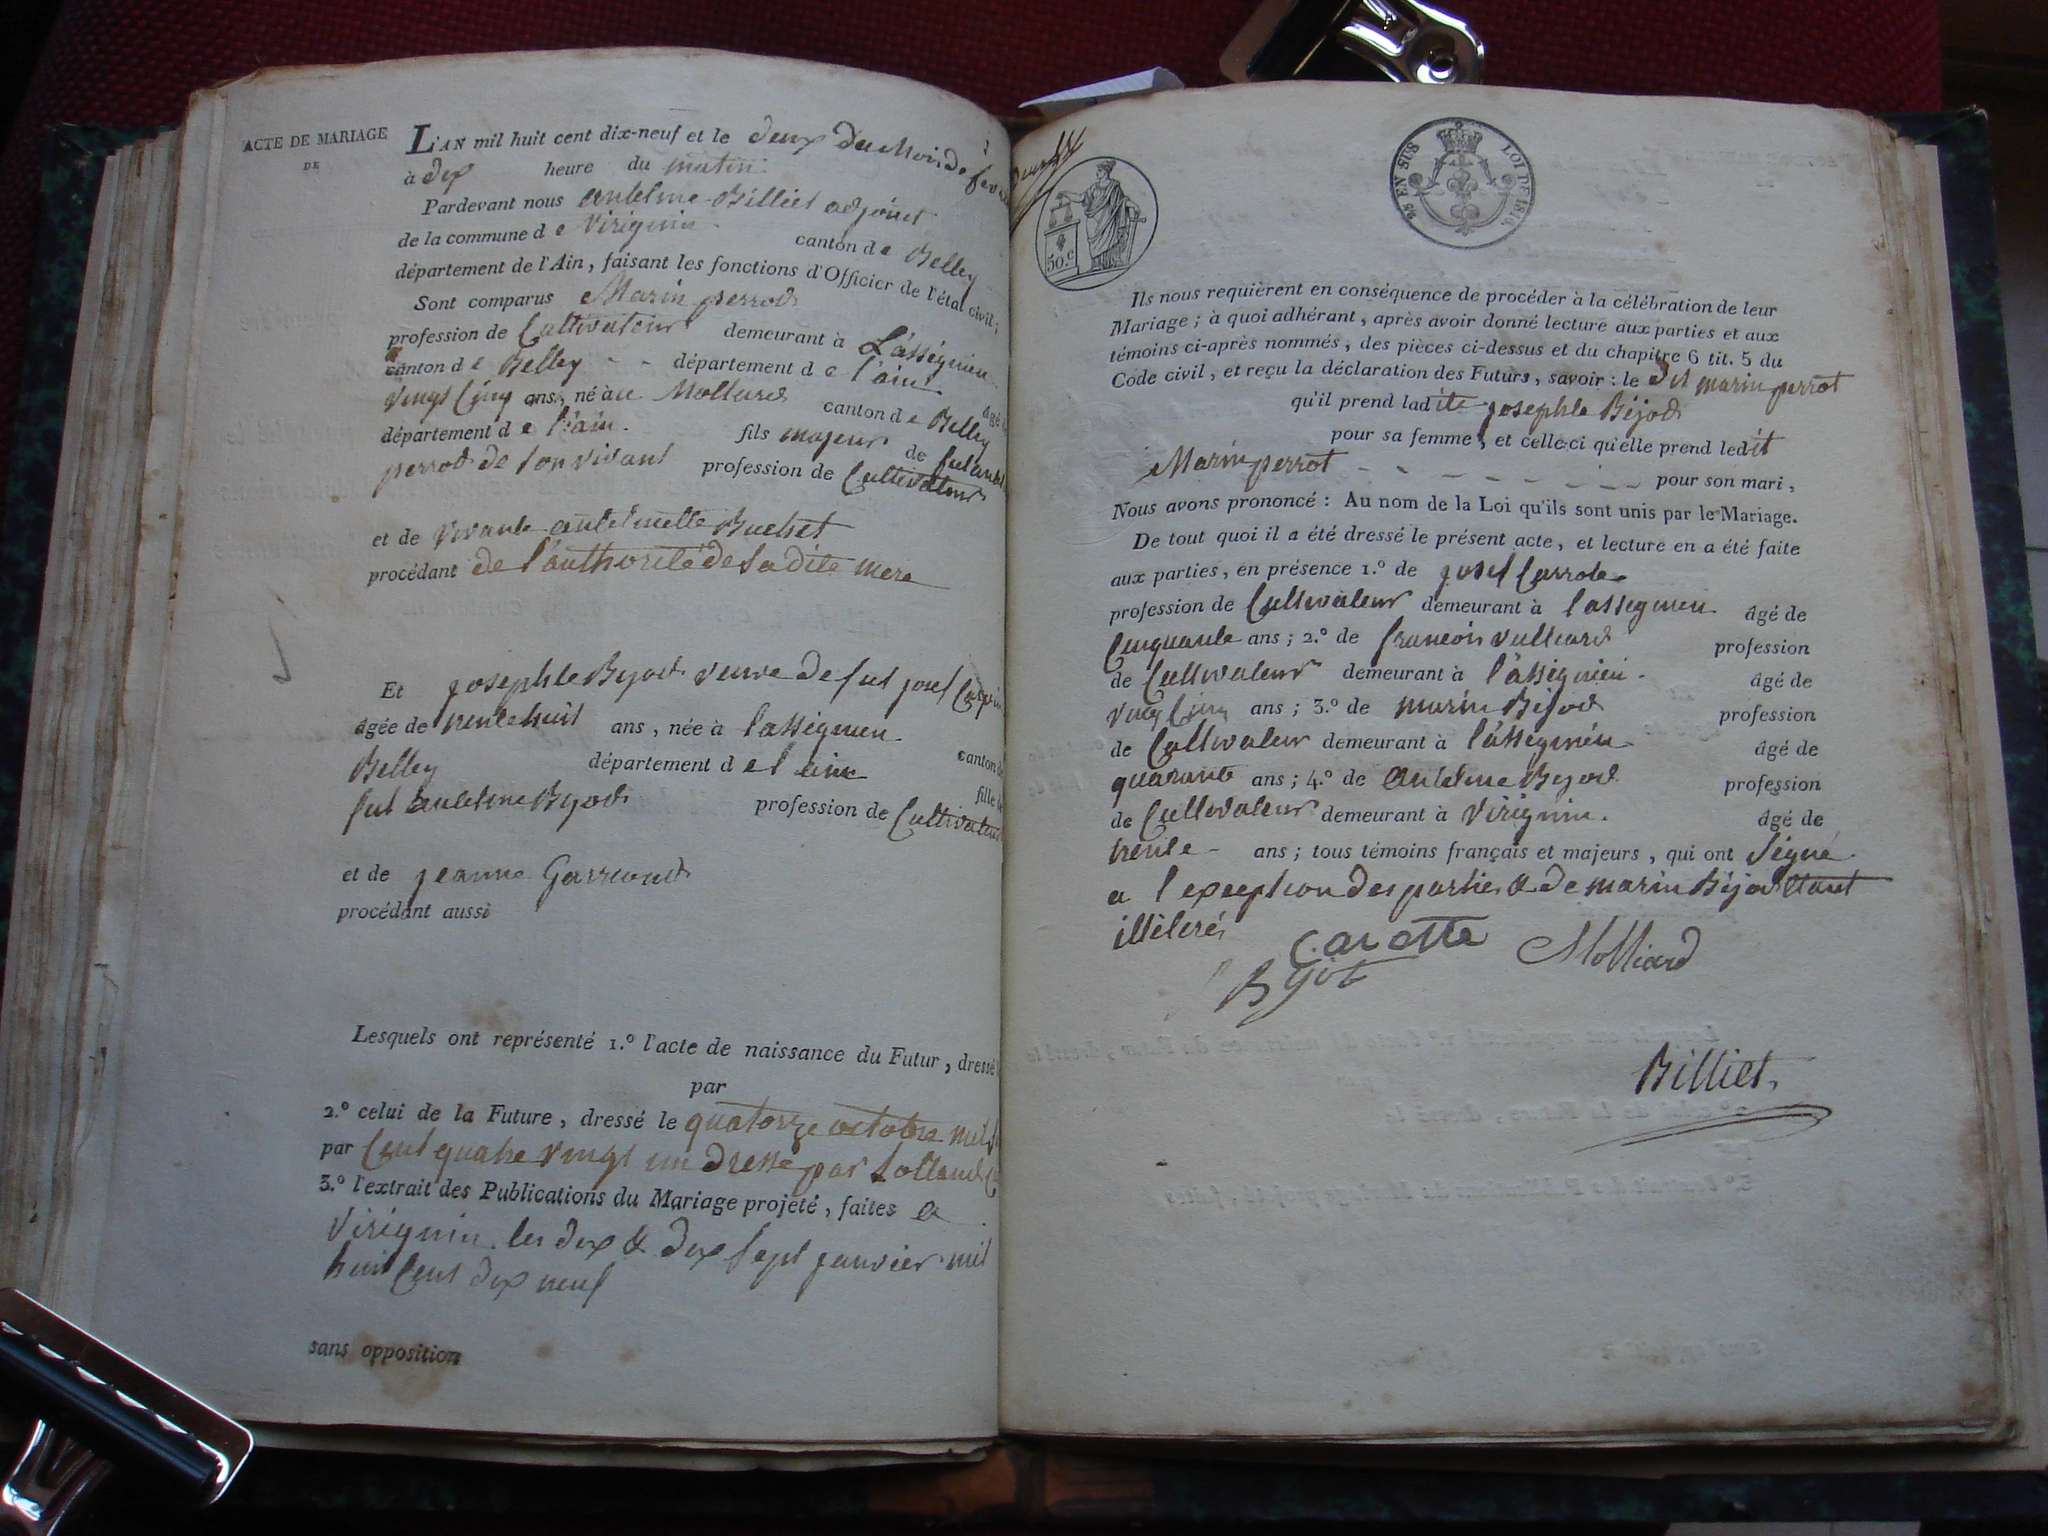 ACTE DE MARIAGE
DE
L'AN mil huit cent dix-neuf et le deux du Mois de
à dix heure du matin
Pardevant nous antelme Billiet adjoint
de la commune de Virignin canton de Belley
département de l'Ain, faisant les fonctions d'Officier de l'état civil;
Sont comparus Marin perrod
profession de Cultivateur demeurant à Lassignieu
canton de Belley département de l'ain âgé
vingt Cinq ans, né au Mollard canton de Belley
département de l'ain. fils majeur de
perrod de son vivant profession de Cultivateur
et de vivante antelmette Buchet
procédant de l'authorité de sa dite mere
Et josephte Bijod veuve de fut josef
âgée de trente huit ans, née à lassignieu canton de
Belley département de l'ain fille
fut antelme Bijod profession de Cultivateur
et de jeanne
procédant aussi
Lesquels ont représenté 1.º l'acte de naissance du Futur, dressé
par
2.º celui de la Future, dressé le quatorze octobre mil
par Cent quatre vingt un dressé par
3.º l'extrait des Publications du Mariage projeté, faites a
Virignin les dix & dix sept janvier mil
huit Cent dix neuf
sans opposition
50.c
25 EN SUS
LOI DE 1816
Ils nous requièrent en conséquence de procéder à la célébration de leur
Mariage; à quoi adhérant, après avoir donné lecture aux parties et aux
témoins ci-après nommés, des pièces ci-dessus et du chapitre 6 tit. 5 du
Code civil, et reçu la déclaration des Futurs, savoir: le dit marin perrot
qu'il prend ladite josephte Béjod
pour sa femme, et celle-ci qu'elle prend ledit
Marin perrot pour son mari,
Nous avons prononcé: Au nom de la Loi qu'ils sont unis par le Mariage.
De tout quoi il a été dressé le présent acte, et lecture en a été faite
aux parties, en présence 1.º de josef
profession de Cultivateur demeurant à lassignieu âgé de
Cinquante ans; 2.º de francois profession
de Cultivateur demeurant à lassignieu. âgé de
vingt Cinq ans; 3.º de marin Béjod profession
de Cultivateur demeurant à lassignieu âgé de
quarante ans; 4.º de antelme Bejod profession
de Cultivateur demeurant à Virignin. âgé de
trente ans; tous témoins français et majeurs, qui ont signé
a l'exception des parties & de marin Béjod étant
illétérés
Carotte Molliard
Bijot
Billiet